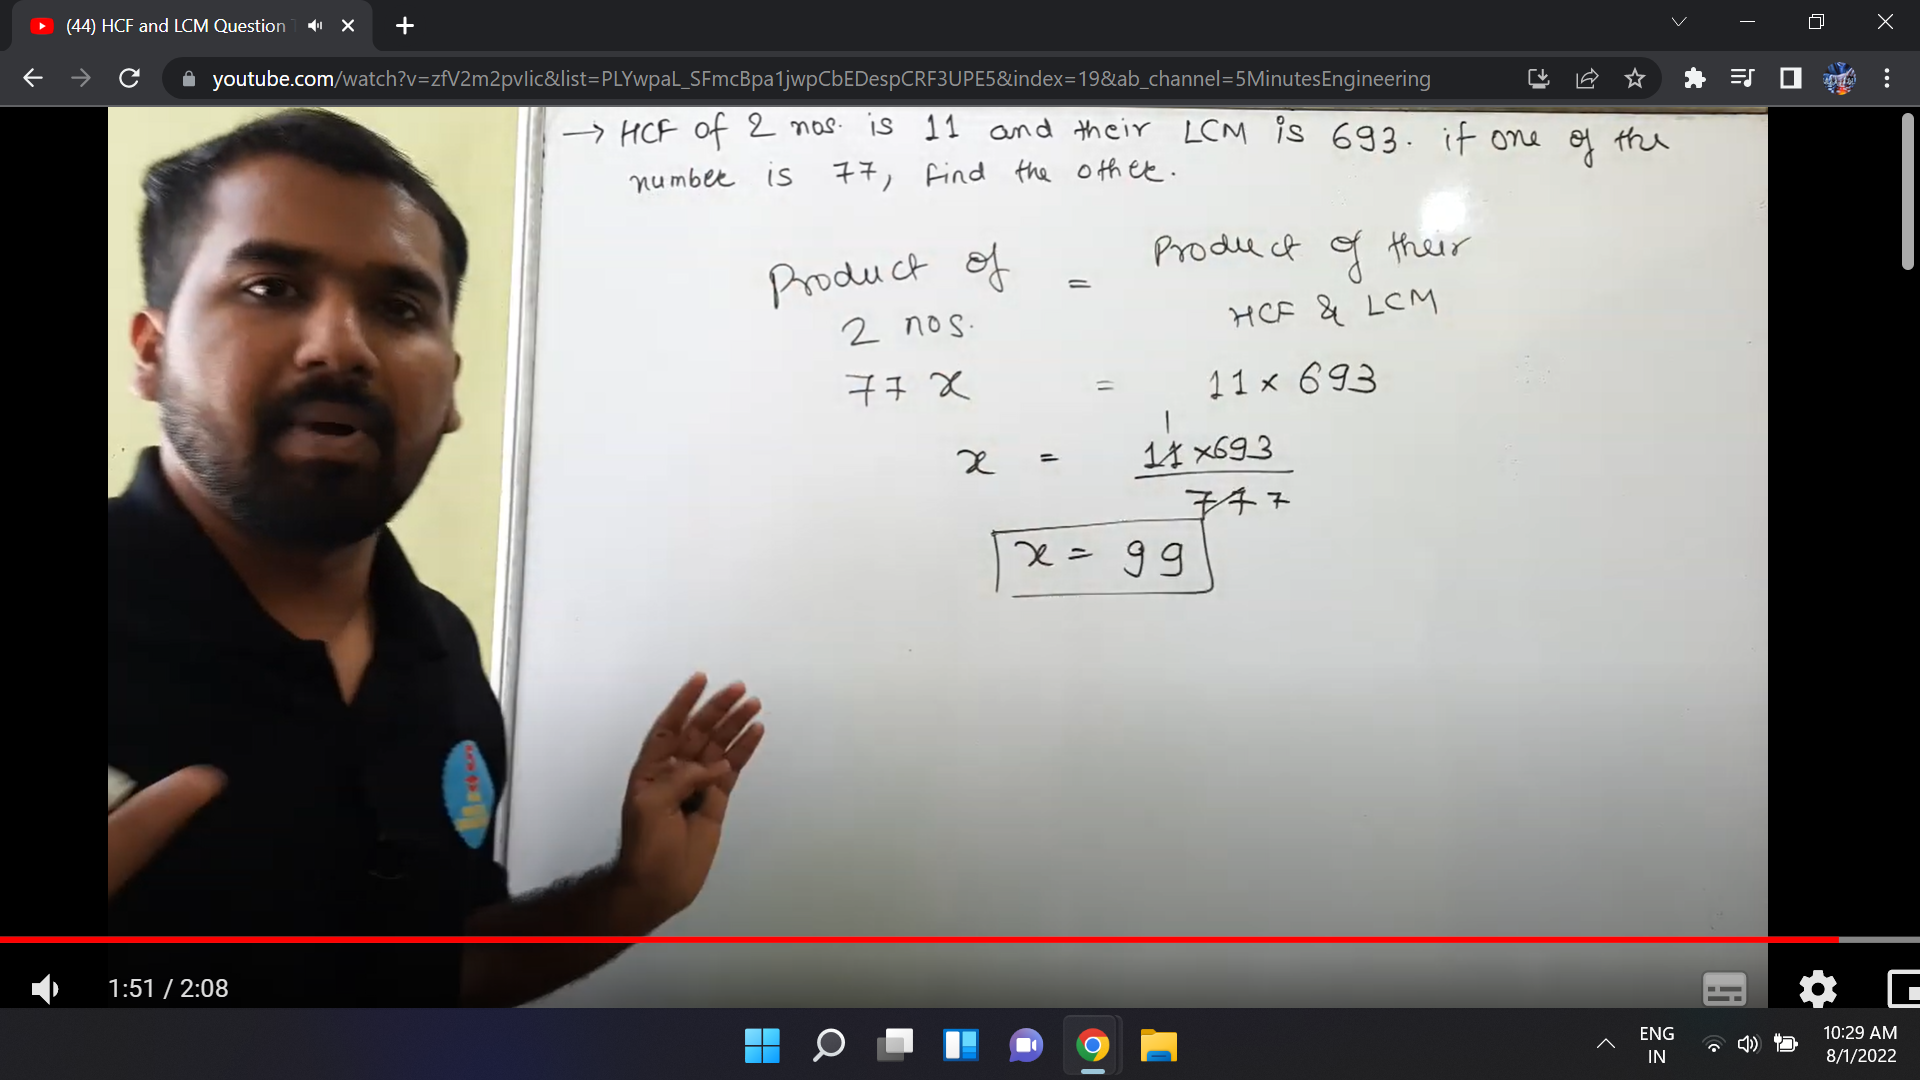 (44) HCF and LCM Question
youtube.com/watch?v=zfV2m2pvIic&list=PLYwpaL_SFmcBpa1jwpCbEDespCRF3UPE5&index=19&ab_channel=5MinutesEngineering
→ HCF of 2 nos. is 11 and their LCM is 693. if one of the
number is 77, find the other.
Product of = Product of their
2 nos. HCF & LCM
77 x = 11 x 693
1
x = 11 x 693
77 7
x = 99
1:51 / 2:08
ENG
IN
10:29 AM
8/1/2022